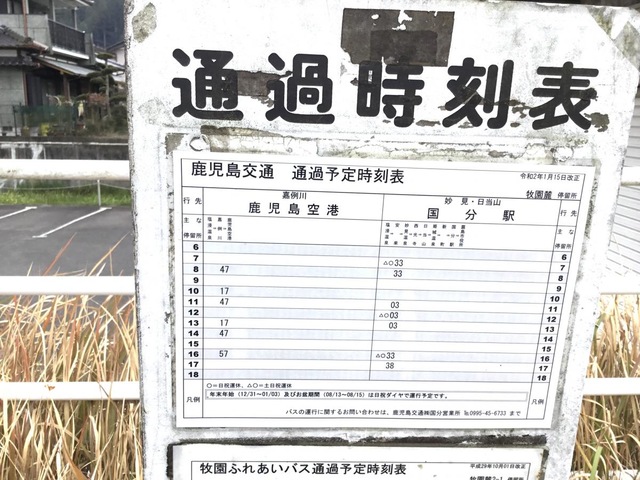 通過時刻表
鹿児島交通 通過予定時刻表
令和2年1月15日改正
牧園麓 停留所
行先
嘉例川
鹿児島空港
妙見・日当山
国分駅
行先
主な停留所
主な停留所
6 6
7 △○33 7
8 47 33 8
9 9
10 17 10
11 47 03 11
12 △○03 12
13 17 03 13
14 47 14
15 15
16 57 △○33 16
17 38 17
18 18
凡例
○=日祝運休、△○=土日祝運休
年末年始(12/31~01/02)及びお盆期間(08/13~08/15)は日祝ダイヤで運行予定です。
バスの運行に関するお問い合わせは、鹿児島交通㈱国分営業所 ℡0995-45-6733 まで
凡例
牧園ふれあいバス通過予定時刻表
平成29年10月01日改正
停留所